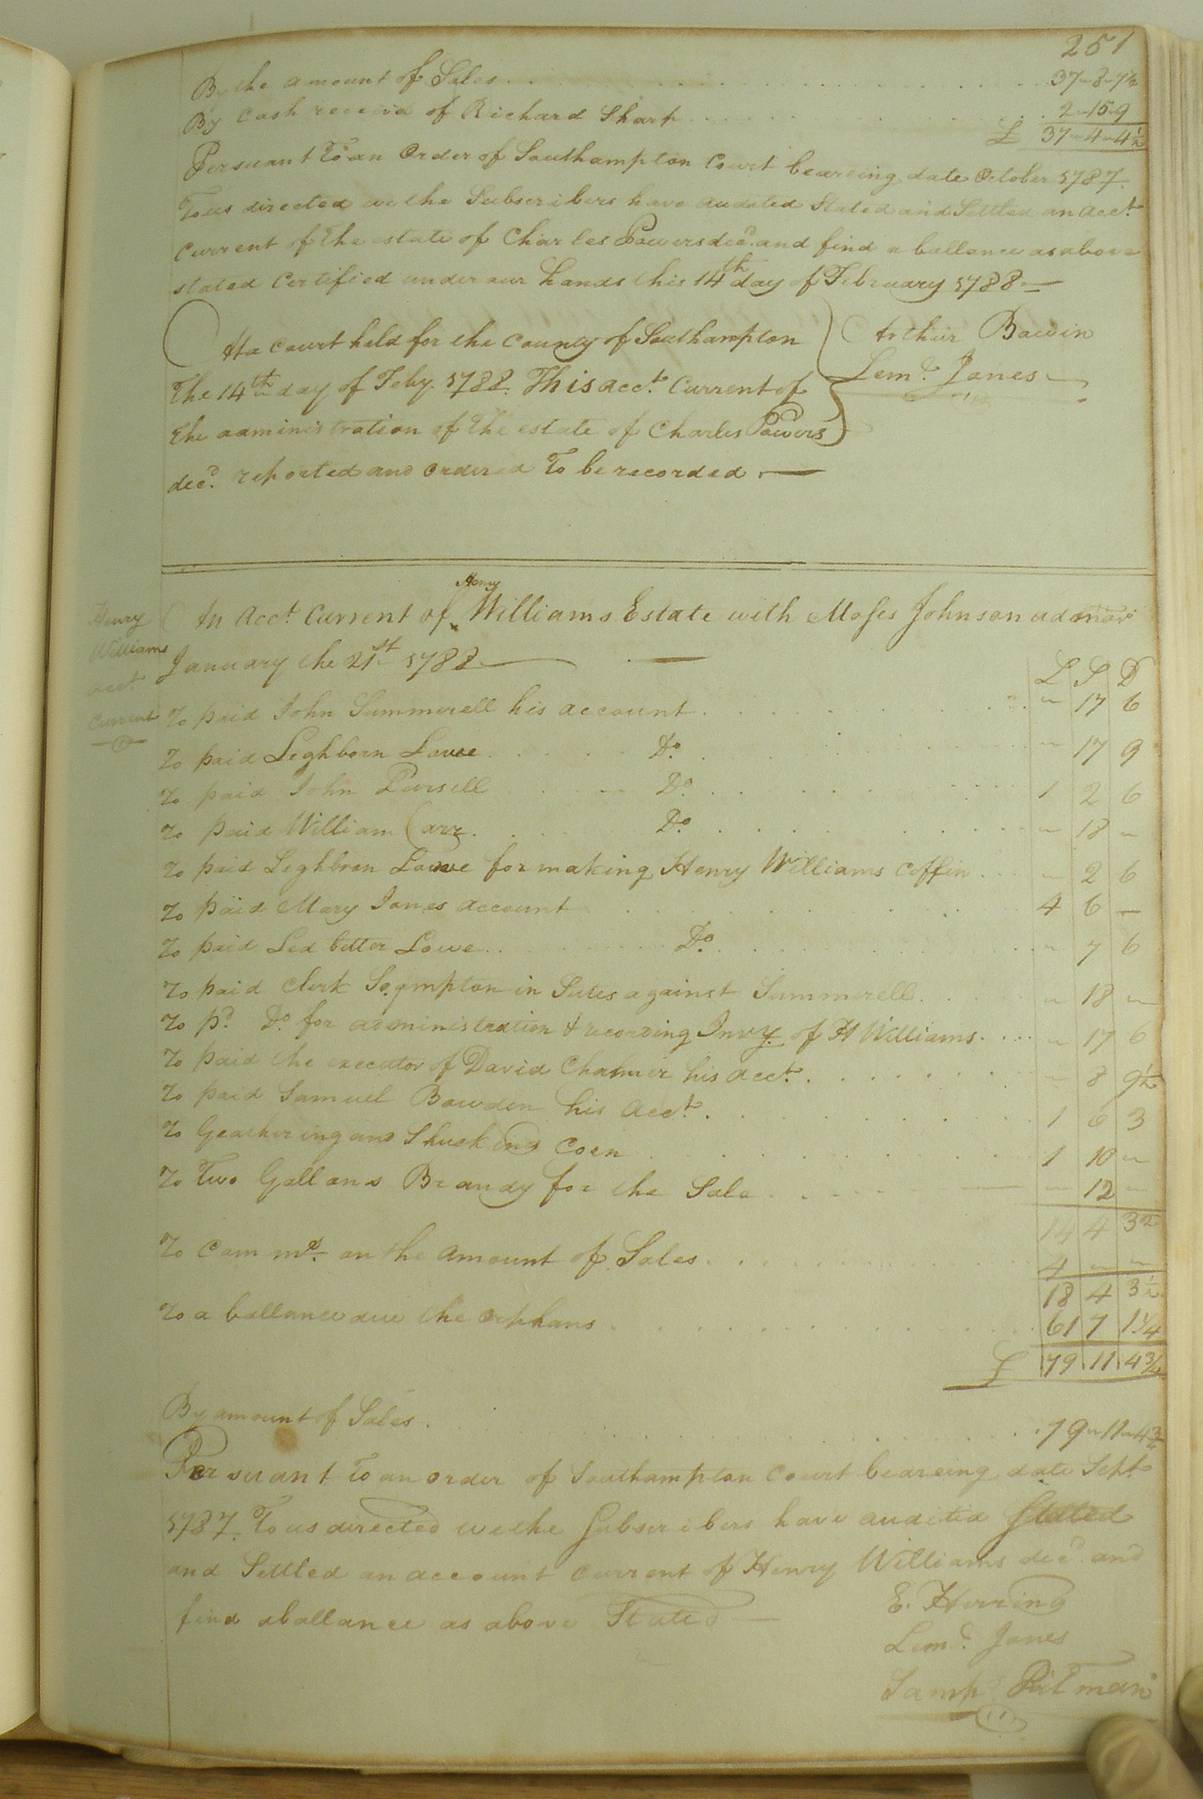 251
By the amount of Sales 37-8-7½
By Cash received of Richard Sharp 2-15-9
£ 37-4-4½
Persuant To an Order of Southampton Court bearing date October 1787.
To us directed we the Subscribers have audated Stated and Settled an Acct.
Current of the estate of Charles Powers decd. and find a ballance as above
stated Certified under our hands this 14th day of February 1788
At a Court held for the County of Southampton
The 14th day of Feby. 1788. This Acct. Current of
the administration of the estate of Charles Powers
decd. reported and ordered To be recorded
Arthur Bowin
Lemd. Jones
Henry
Williams
acct.
Current
An Acct. Current of Henry Williams Estate with Moses Johnson admor
January the 21st 1788
L S D
To paid John Summerell his account " 17 6
To paid Leghborn Lowe Do. " 17 9
To paid John Pursell Do. 1 2 6
To paid William Carr Do. " 18 "
To paid Leghbron Lowe for making Henry Williams Coffin " 2 6
To paid Mary Jones account 4 6 –
To paid Led better Lowe Do. " 7 6
To paid Clerk in Sutes against Summerell " 18 "
To pd. Do. for administration & recording Invy. of H Williams " 17 6
To paid the executor of David his acct. " 8 9½
To paid Samuel Bowden his Acct. 1 6 3
To Geathering and Shusking Coen 1 10 "
To Two Gallons Brandy for the Sale – 12 –
14 4 3½
To Com ms. on the amount of Sales 4 – –
18 4 3½
To a ballance due the orphans 61 7 1¼
£ 79 11 4¾
By amount of Sales 79-11-4¾
Persuant To an order of Southampton Court beareing date Sept
1787. To us directed we the Subscribers have audited Stated
and Settled an account Current of Henry Williams decd. and
find aballance as above Stated
E. Herring
Lemd. Jones
Samp Pitman